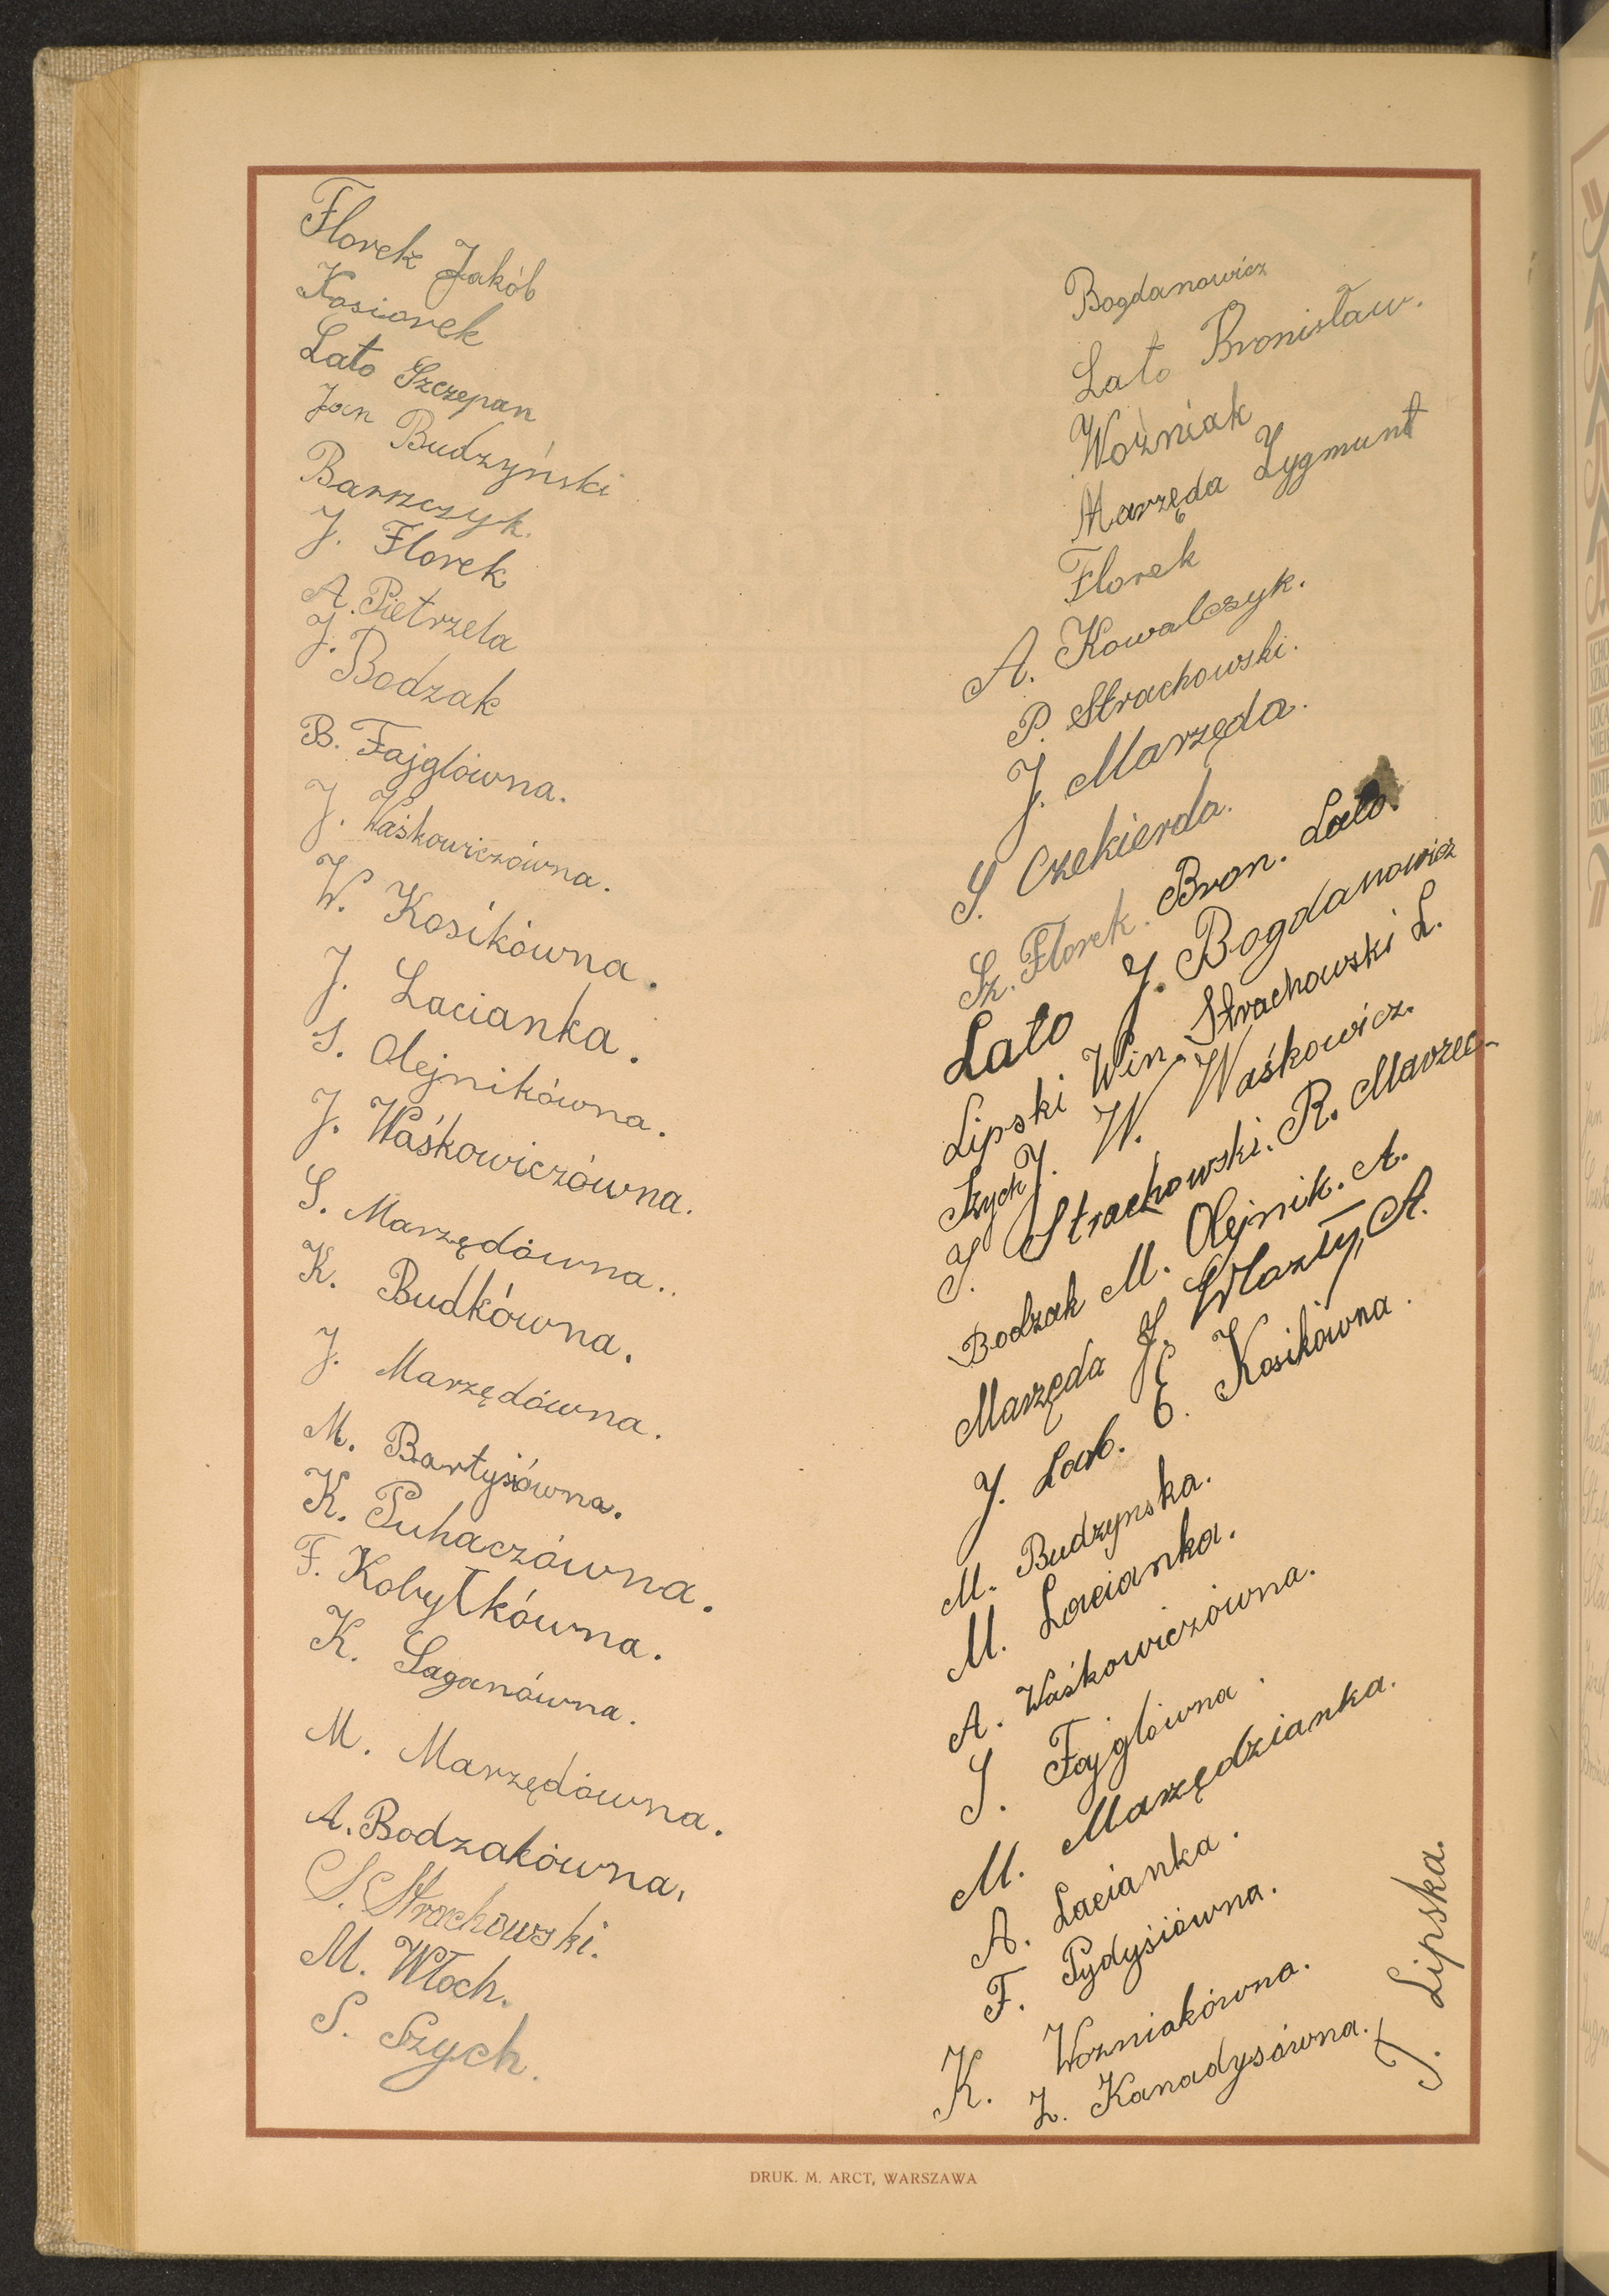 Florek Jakób
Kosiorek
Lato Szczepan
Jan Budzyński
Barszczyk.
J. Florek
A. Pietrzela
J. Bodzak
B. Fajglówna.
J. Waśkowiczówna.
W. Kosikówna.
J. Lacianka.
S. Olejnikówna.
J. Waśkowiczówna.
S. Marzędówna..
K. Budkówna.
J. Marzędówna.
M. Bartysiówna.
K. Puhaczówna.
F. Kobyłkówna.
K. Saganówna.
M. Marzędówna.
A. Bodzakówna.
S. Strachowski.
M. Włoch.
S. Szych.
Bogdanowicz
Lato Bronisław.
Woźniak
Marzęda Zygmunt
Florek
A. Kowalczyk.
P. Strachowski.
J. Marzęda.
S. Czekierda.
Sz. Florek. Bron. Lato.
Lato J. Bogdanowicz
Lipski Win. Strachowski L.
Szych J. W. Waśkowicz.
J. Strachowski. R. Marzec
Bodzak M. Olejnik. A.
Marzęda J. Wlazły, A.
J. Lab. E. Kosikówna.
M. Budzynska.
M. Lacianka.
A. Waśkowiczówna.
S. Fajglówna.
M. Marzędzianka.
A. Lacianka.
F. Pydysiówna.
K. Wozniakówna.
Z. Kanadysówna.
J. Lipska.
DRUK. M. ARCT, WARSZAWA